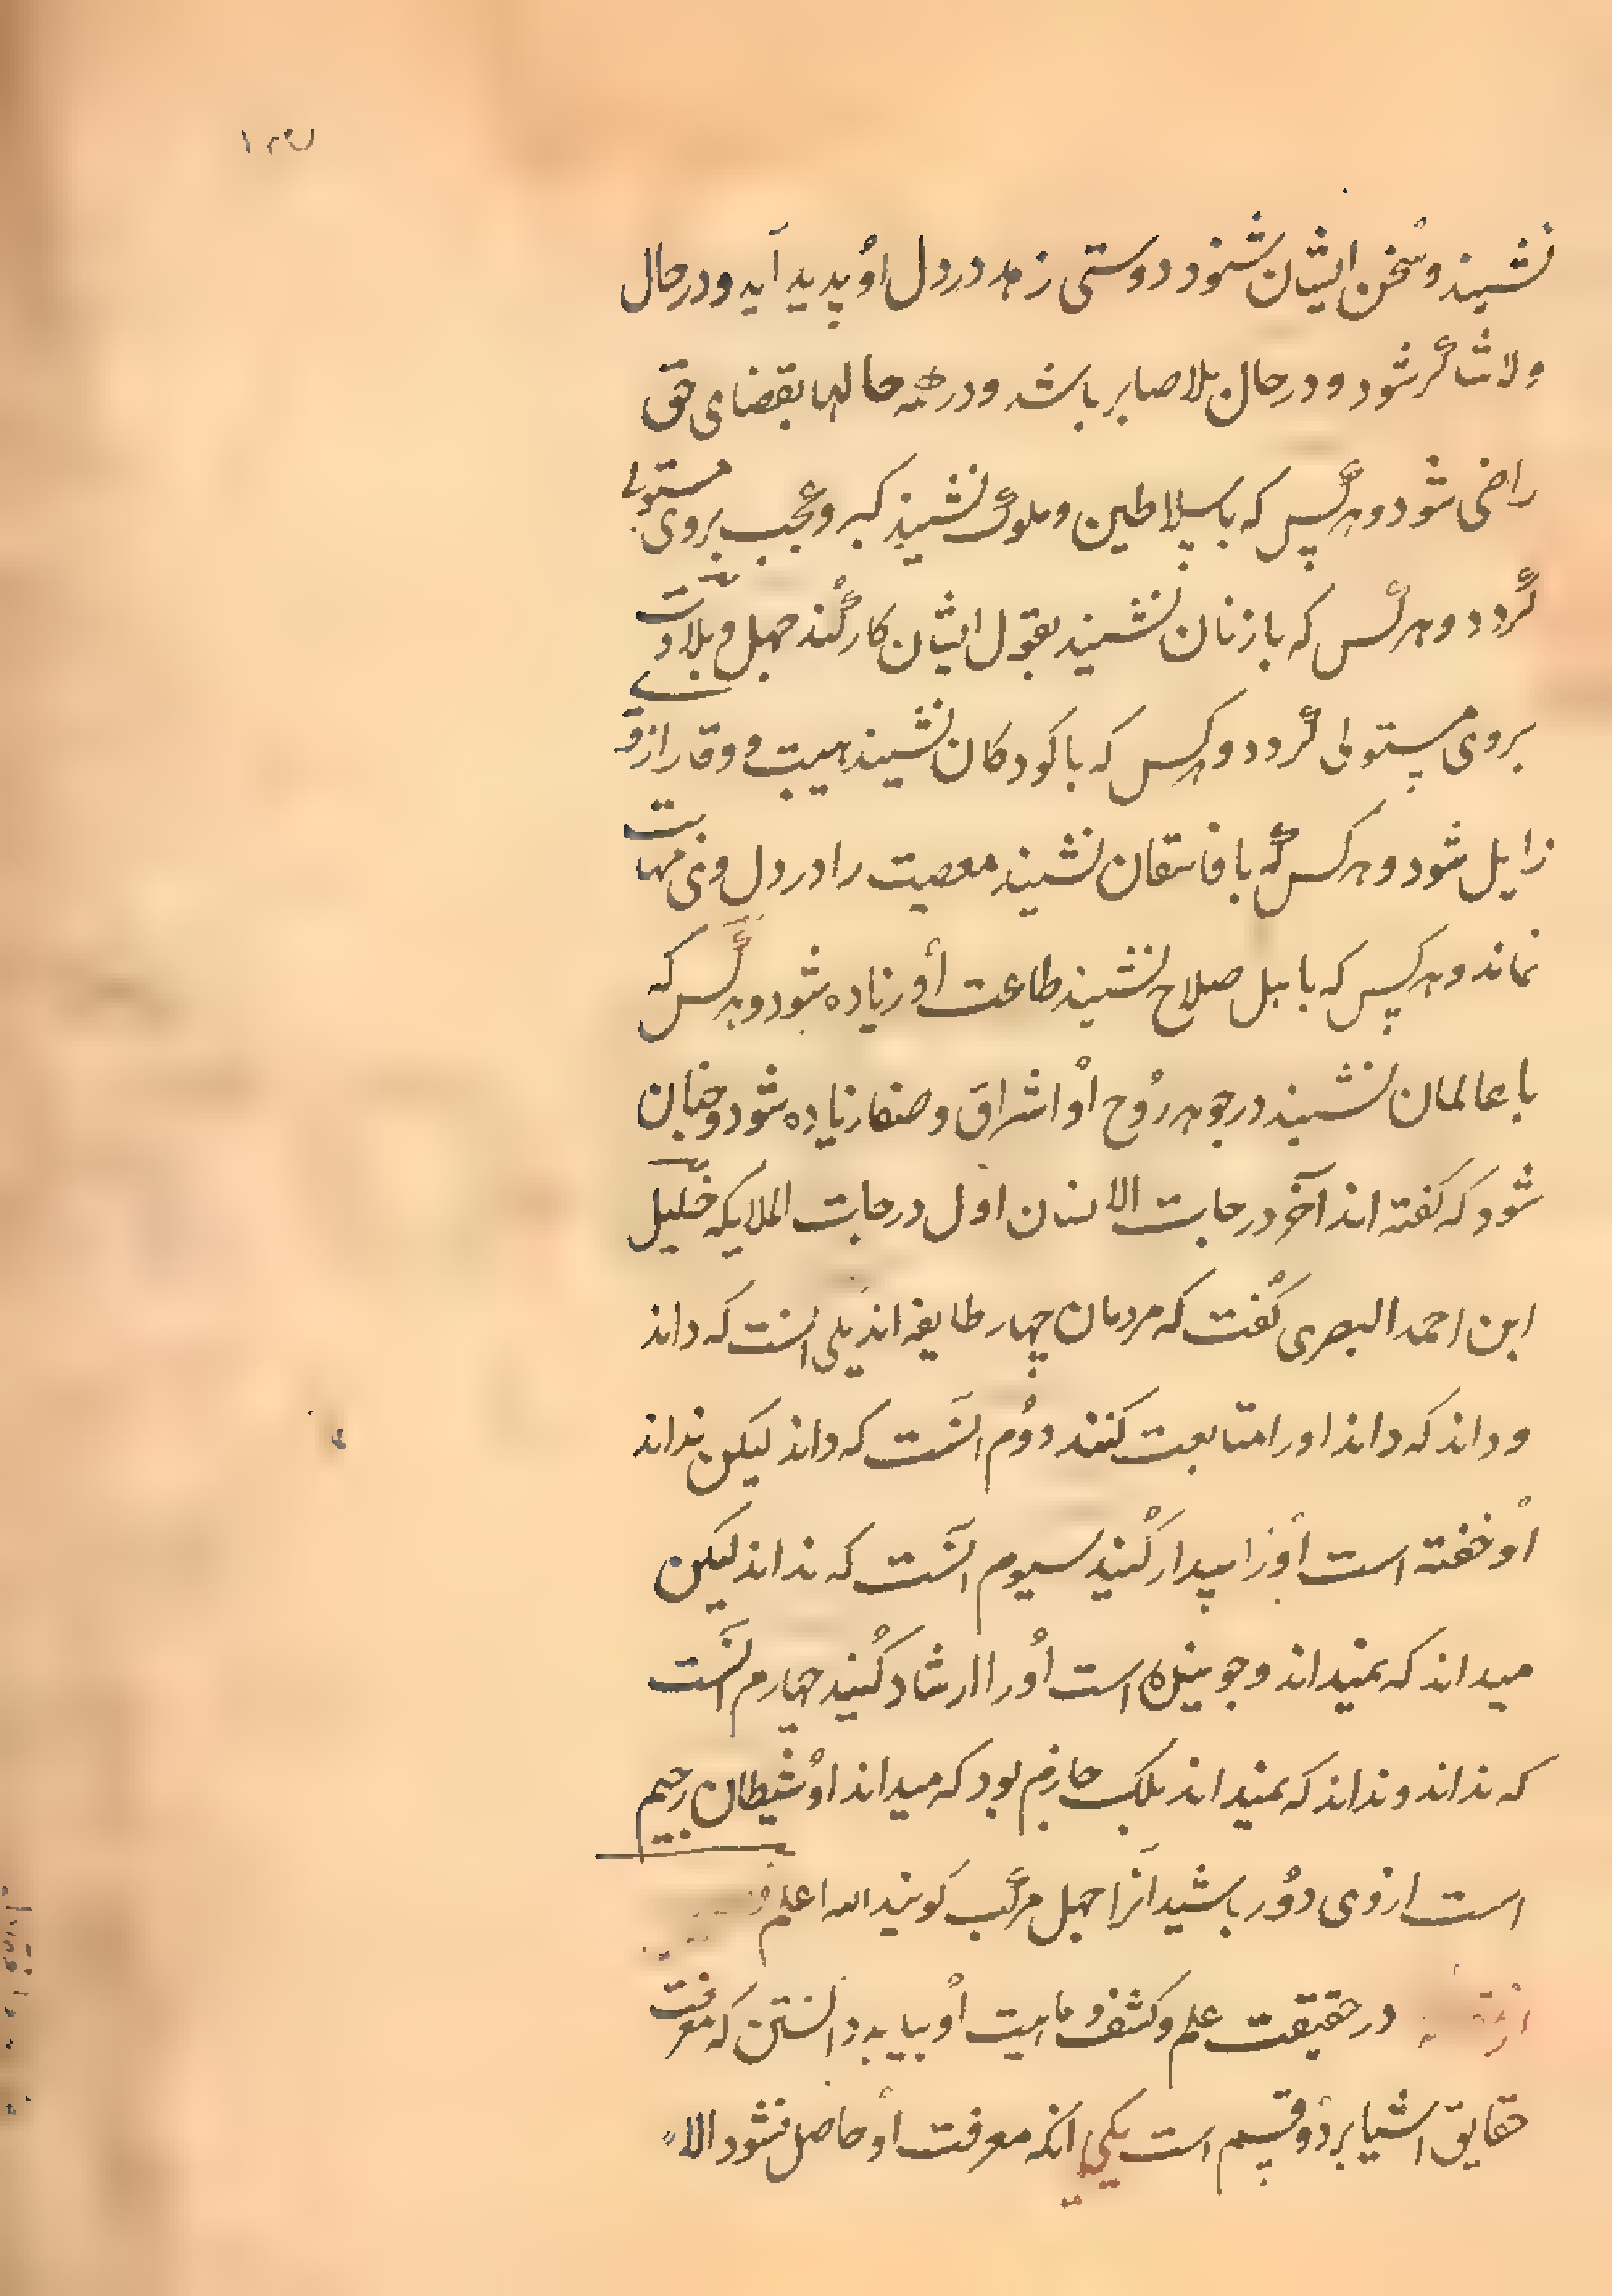 نشیند و سخن ایشان شنود دوستی زهد در دل او پدید آید و در حال
ولا شاکر شود و در حال بلا صابر باشد و در همه حالها بقضای حق
راضی شود و هرکس که با سلاطین و ملوک نشیند کبر و عجب بروی مستولی
گردد و هرکس که با زنان نشیند بقول ایشان کار کند جهل و بلادت
بروی مستولی گردد و هرکس که با کودکان نشیند هیبت و وقار از و
زایل شود و هرکس که با فاسقان نشیند معصیت را در دل وی مهابت
نماند و هرکس که باهل صلاح نشیند طاعت او زیاده شود و هرکس که
با عالمان نشیند در جوهر روح او اشراق و صفا زیاده شود و چنان
شود که کفته اند آخر درجات الانسان اول درجات الملایکه خلیل
ابن احمد البصری کفت که مردمان چهار طایفه اند یکی انست که داند
و داند که داند او را متابعت کنند دوم انست که داند لیکن نداند
او خفته است او را بیدار کنید سیوم انست که نداند لیکن
میداند که نمیداند و جوینده است او را ارشاد کنید چهارم انست
که نداند و نداند که نمیداند بلک جازم بود که میداند او شیطان رجیم
است از وی دور باشید انرا جهل مرکب کویند الله اعلم
در حقیقت علم و کشف ماهیت او بباید دانستن که معرفت
حقایق اشیا بر دو قسم است یکی انکه معرفت او حاصل نشود الا